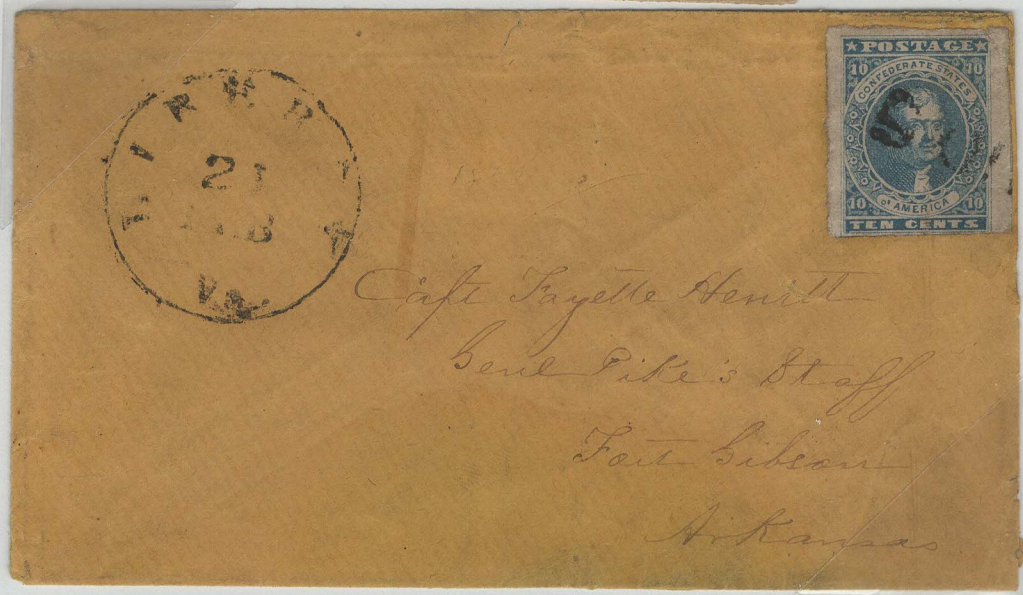 POSTAGE
10 10
CONFEDERATE STATES
OF AMERICA
10 10
TEN CENTS
5
21
VA.
Capt Fayette Hewitt
Genl Pike's Staff
Fort Gibson
Arkansas